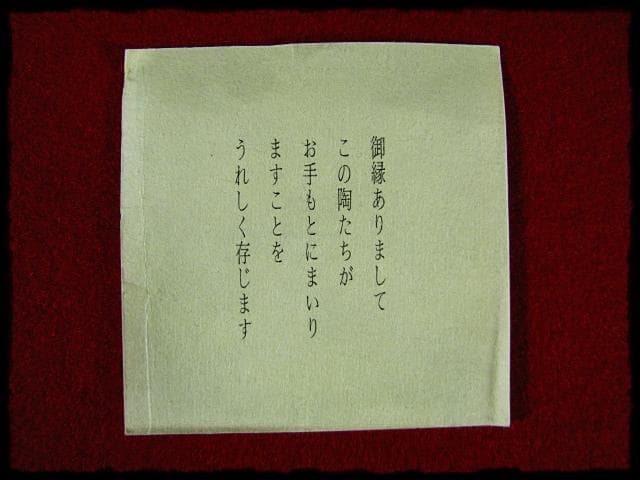 御縁ありまして
この陶たちが
お手もとにまいり
ますことを
うれしく存じます